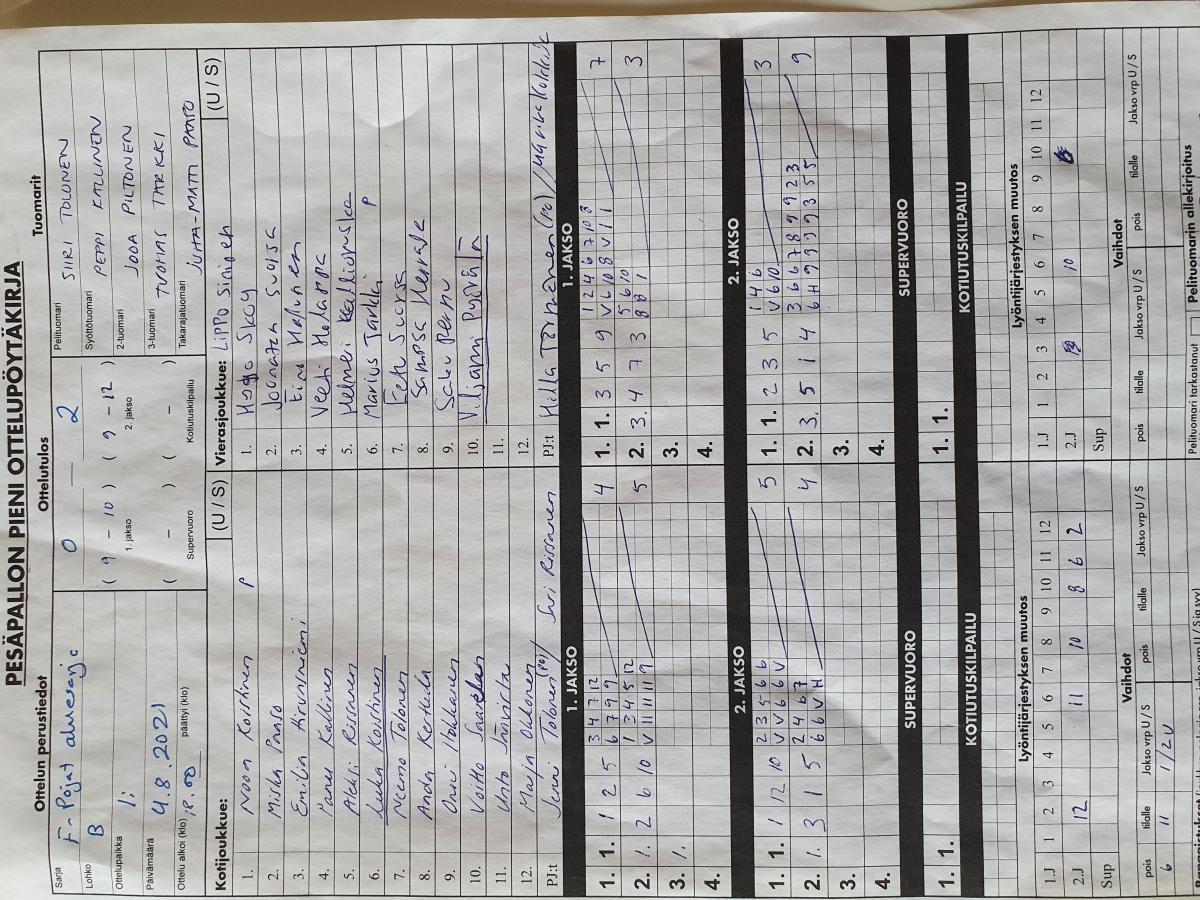 PESÄPALLON PIENI OTTELUPÖYTÄKIRJA
Ottelun perustiedot
Ottelutulos
Tuomarit
Sarja F-Pojat aluesarja
Lohko B
Ottelupaikka Ii
Päivämäärä 4.8.2021
Ottelu alkoi (klo) 18.00 päättyi (klo)
0 2
( 9 - 10 ) ( 9 - 12 )
1. jakso 2. jakso
( - ) ( - )
Supervuoro Kotiutuskilpailu
Pelituomari SIIRI TOLONEN
Syöttötuomari PEPPI KALLINEN
2-tuomari JOOA PILTONEN
3-tuomari TUOMAS TARKKI
Takarajatuomari JUHA-MATTI PAASO
Kotijoukkue: (U / S)
1. Noon Koistinen P
2. Miska Paaso
3. Emilia Hirvaniemi
4. Panu Kallinen
5. Aleksi Rissanen
6. Koistinen
7. Neemo Tolonen
8. Anda Kerkelä
9. Onni
10. Voitto
11. Unto
12. Maija Okkonen
PJ:t Jenni Tolonen (PO) / Suvi Rissanen
Vierasjoukkue: LiPPo Sininen (U / S)
1. Hugo Skog
2. Joonatan Suorsa
3. Eino Halunen
4. Veeti Holappa
5. Melmei
6. Marius Tarkka P
7. Eetu Suorsa
8. Sampsa
9. Saku Pernu
10. Viljami
11.
12.
PJ:t Hilla Törmänen (PO) /
1. JAKSO
1. 1. 1 2 5 3 4 7 12 4
6 7 9 9
2. 1. 2 6 10 1 3 4 5 12 5
V 11 11 11 9
3. 1.
4.
1. JAKSO
1. 1. 3 5 9 1 2 4 6 7 10 8 7
V 6 10 8 V 1 1
2. 3. 4 7 3 5 6 10 3
8 8 1
3.
4.
2. JAKSO
1. 1. 1 12 10 2 3 5 6 6 5
V V 6 6 V
2. 1. 3 1 5 2 4 6 7 4
6 6 V H
3.
4.
2. JAKSO
1. 1. 2 3 5 1 4 6 3
V 6 10
2. 3. 5 1 4 3 6 7 8 9 9 2 3 9
6 H 9 9 9 3 5 5
3.
4.
SUPERVUORO
1. 1.
SUPERVUORO
1. 1.
KOTIUTUSKILPAILU
KOTIUTUSKILPAILU
Lyöntijärjestyksen muutos
1 2 3 4 5 6 7 8 9 10 11 12
1.J
2.J 12 11 10 8 6 2
Sup
Lyöntijärjestyksen muutos
1 2 3 4 5 6 7 8 9 10 11 12
1.J
2.J 10
Sup
Vaihdot
pois tilalle Jakso vrp U / S pois tilalle Jakso vrp U / S
6 11 1/2U
Vaihdot
pois tilalle Jakso vrp U / S pois tilalle Jakso vrp U / S
Pelituomari tarkastanut
Pelituomarin allekirjoitus